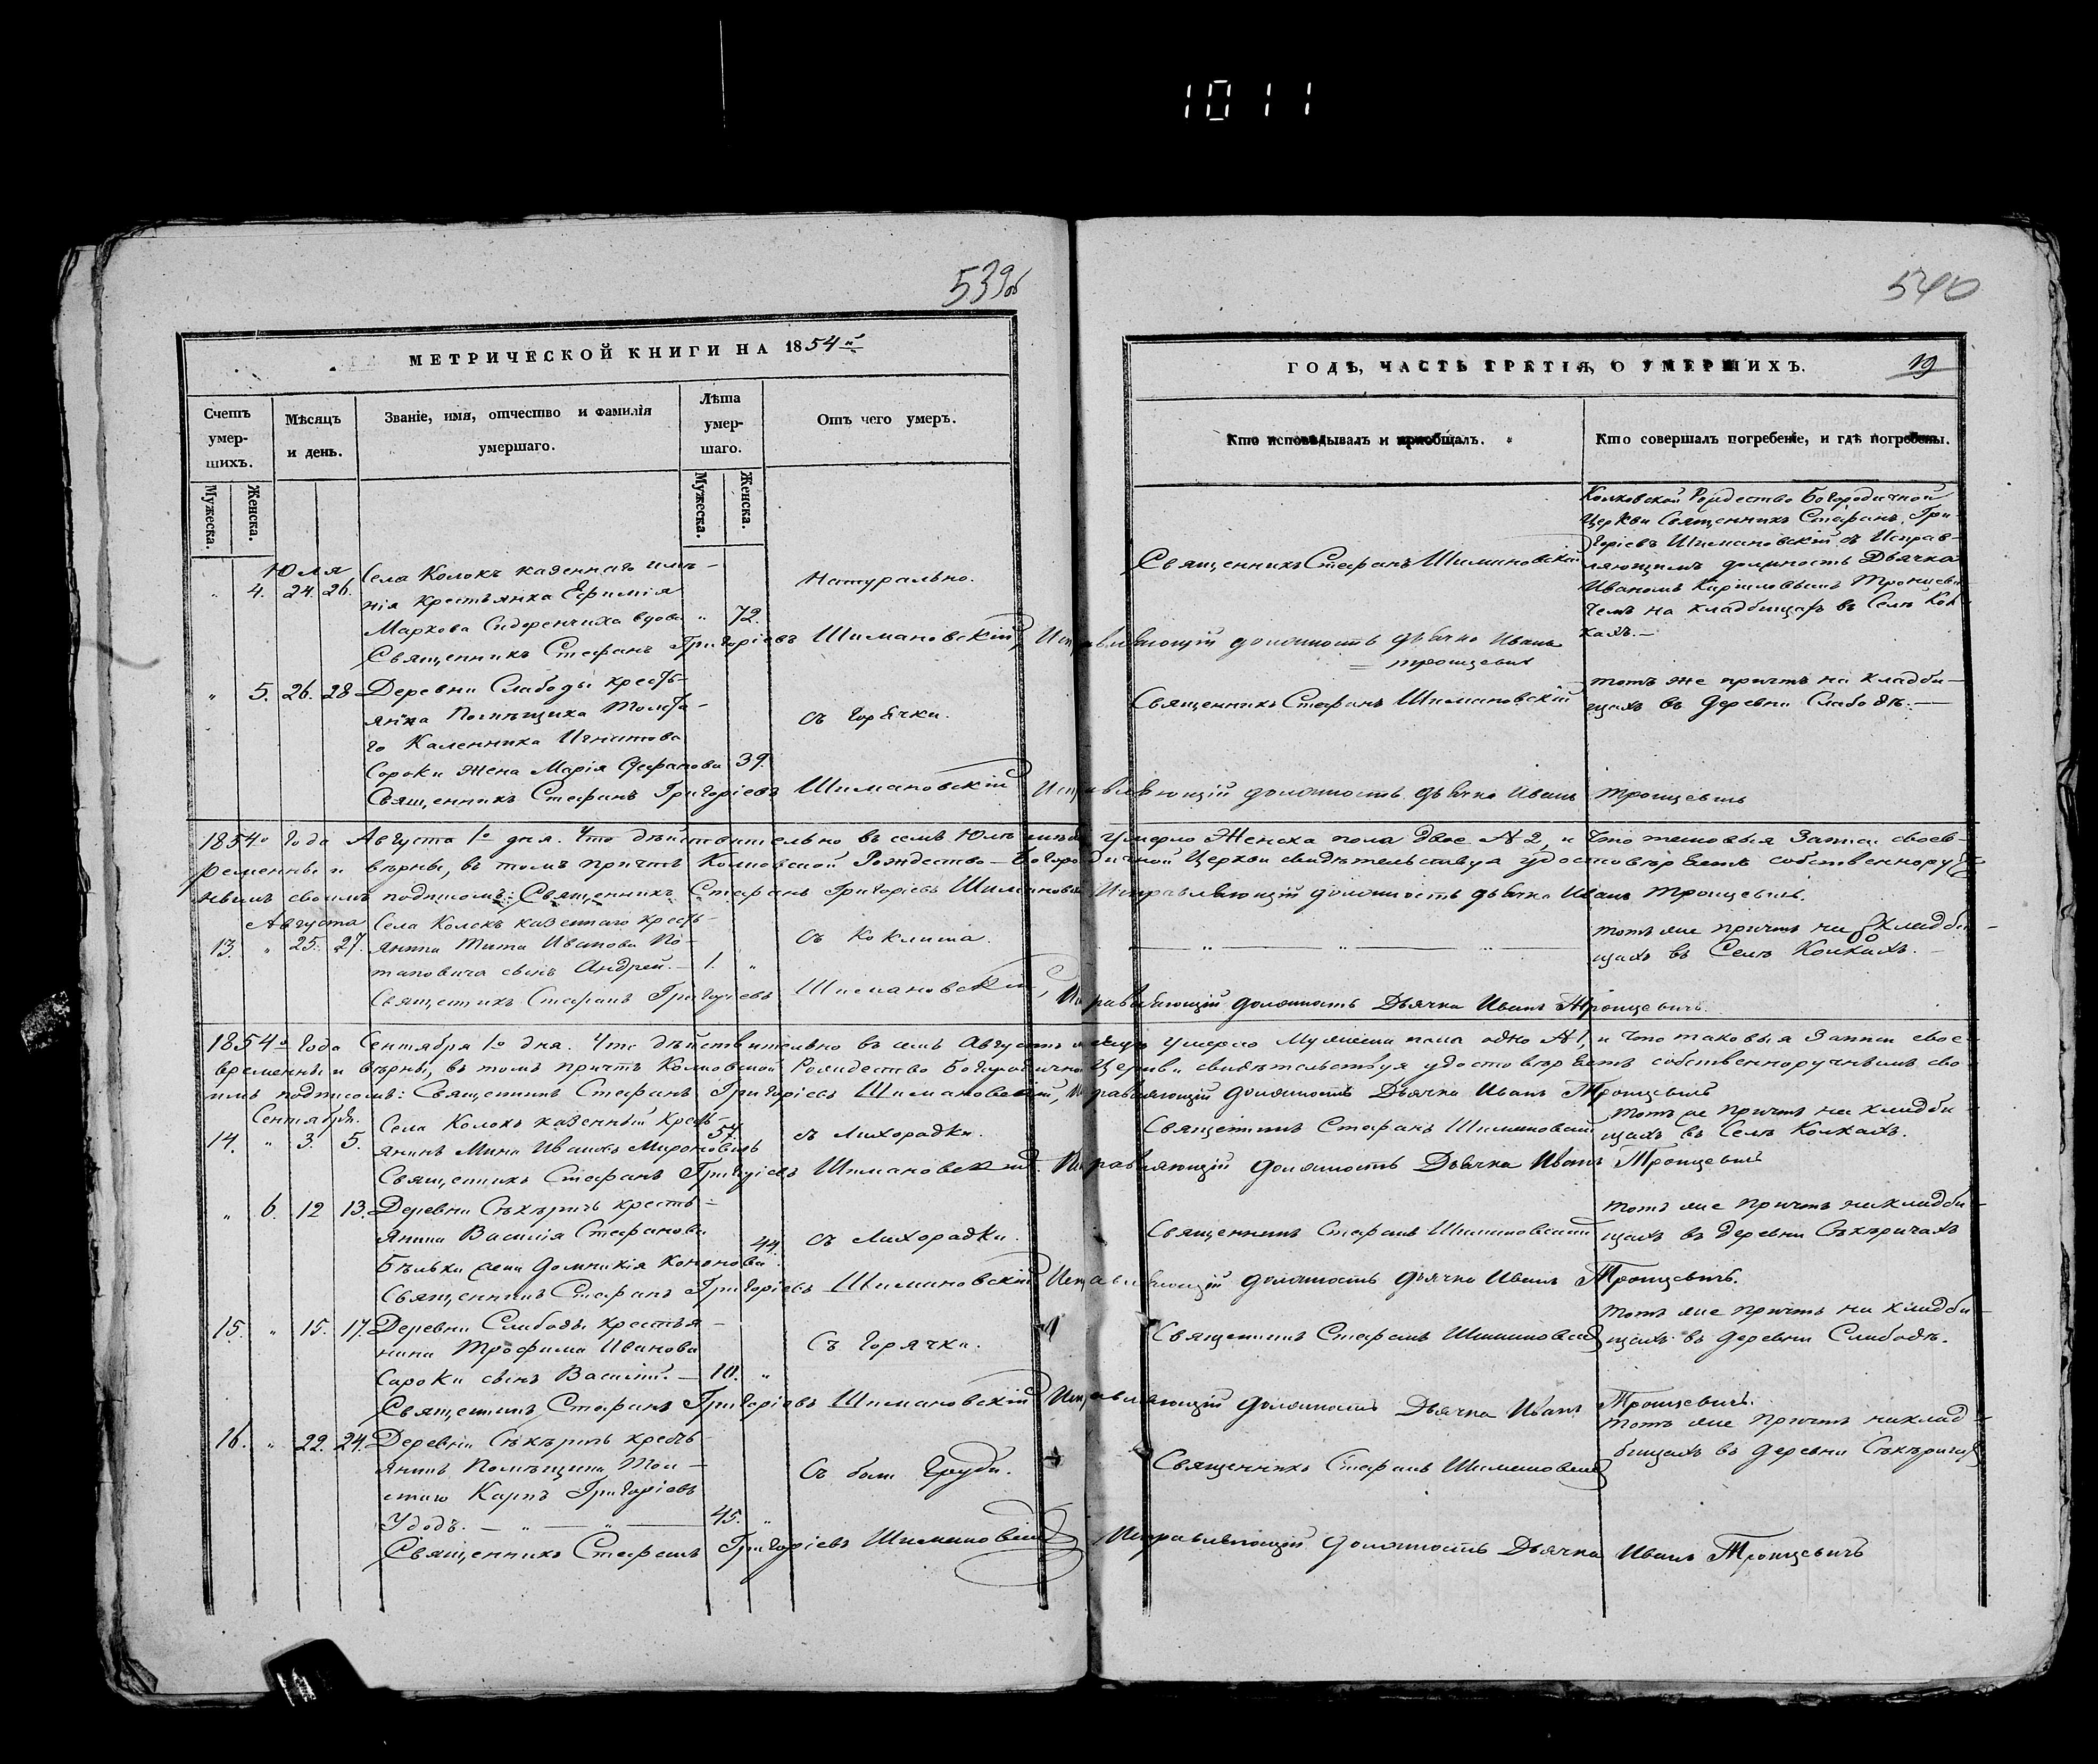 1011
539об
540
МЕТРИЧЕСКОЙ КНИГИ НА 1854й
ГОДЪ, ЧАСТЬ ТРЕТІЯ, О УМЕРШИХЪ.
19
Счетъ умер-шихъ.
Мѣсяцъ и день.
Званіе, имя, отчество и фамилія умершаго.
Лѣта умер-шаго.
Отъ чего умеръ.
Кто исповѣдывалъ и пріобщалъ.
Кто совершалъ погребеніе, и гдѣ погребены.
Мужеска.
Женска.
Мужеска.
Женска.
Колковской Рождество Богородичной
Церкви Священникъ Стефанъ Гри-
горіевъ Шимановскій съ Исправ-
ляющимъ должность Дьячка
Иваномъ Кириловымъ Тронцеви-
чемъ на кладбищахъ въ Селѣ Кол-
кахъ.—
Юля
" 4. 24. 26.
Села Колокъ казеннаго имѣ-
нія крестьянка Ефимія
Маркова Сидоренчиха вдова " 72.
Натурально.
Священникъ Стефанъ Шимановскій
Священникъ Стефанъ Григоріевъ Шимановскій, Исправляющій должность дьячка Иванъ
Тронцевичъ
" 5. 26. 28
Деревни Слабоды кресть-
янка Помѣщика Толста-
го Каленника Игнатова
Сороки жена Марія Стефанова 39.
съ Горячки.
Священникъ Стефанъ Шимановскій
тотъ же причтъ на кладби-
щахъ въ деревни Слабодѣ.—
Священникъ Стефанъ Григоріевъ Шимановскій Исправляющій должность дьячка Иванъ Тронцевичъ
1854го Года Августа 1го дня. Что дѣйствительно въ семъ Юлѣ мѣсяцѣ умерло Женска пола двое № 2, и что таковыя Записи своев-
ременны и вѣрны, въ томъ причтъ Колковской Рождество-Богородичной Церкви свидѣтельствуя удостовѣряетъ собственноруч-
нымъ своимъ подписомъ: Священникъ Стефанъ Григоріевъ Шимановскій Исправляющій должность дьячка Иванъ Тронцевичъ.
Августа
13. " 25. 27.
Села Колокъ казеннаго кресть-
янина Тита Иванова По-
таповича сынъ Андрей.— 1. "
съ Коклиша.
тотъ же причтъ на кладби-
щахъ въ Селѣ Колкахъ.
Священникъ Стефанъ Григоріевъ Шимановскій, Исправляющій должность Дьячка Иванъ Тронцевичъ.
1854го Года Сентября 1го дня. Что дѣйствительно въ семъ Августѣ мѣсяцѣ умерло Мужеска пола одно № 1, и что таковыя Записи свое-
временны и вѣрны, въ томъ причтъ Колковской Рождество Богородичной Церкви свидѣтельствуя удостовѣряетъ собственноручнымъ сво-
имъ подписомъ: Священникъ Стефанъ Григоріевъ Шимановскій, Исправляющій должность Дьячка Иванъ Тронцевичъ
Сентября.
14. " 3. 5.
Села Колокъ казенный кресть-
янинъ Мина Ивановъ Мироновичъ 54.
съ Лихорадки.
Священникъ Стефанъ Шимановскій
тотъ же причтъ на кладби-
щахъ въ Селѣ Колкахъ.
Священникъ Стефанъ Григоріевъ Шимановскій. Исправляющій должность Дьячка Иванъ Тронцевичъ
" 6. 12 13.
Деревни Сѣкѣричъ кресть-
янина Василія Стефанова
Бѣлька жена Домникія Кононова 44.
съ Лихорадки.
Священникъ Стефанъ Шимановскій
тотъ же причтъ на кладби-
щахъ въ деревни Сѣкѣричахъ
Священникъ Стефанъ Григоріевъ Шимановскій Исправляющій должность дьячка Иванъ Тронцевичъ.
15. " 15. 17.
Деревни Слабоды крестья-
нина Трофима Иванова
Сароки сынъ Василій.— 10. "
Съ Горячки.
Священникъ Стефанъ Шимановскій
тотъ же причтъ на кладби-
щахъ въ деревни Слабодѣ.
Священникъ Стефанъ Григоріевъ Шимановскій Исправляющій должность Дьячка Иванъ Тронцевичъ.
16. " 22. 24.
Деревни Сѣкѣричъ кресть-
янинъ Помѣщика Тол-
стаго Карпъ Григоріевъ
Удодъ. — " — " — 45. "
Съ боли Груди.
Священникъ Стефанъ Шимановскій
тотъ же причтъ на клад-
бищахъ въ деревни Сѣкѣричахъ
Священникъ Стефанъ Григоріевъ Шимановскій Исправляющій должность Дьячка Иванъ Тронцевичъ